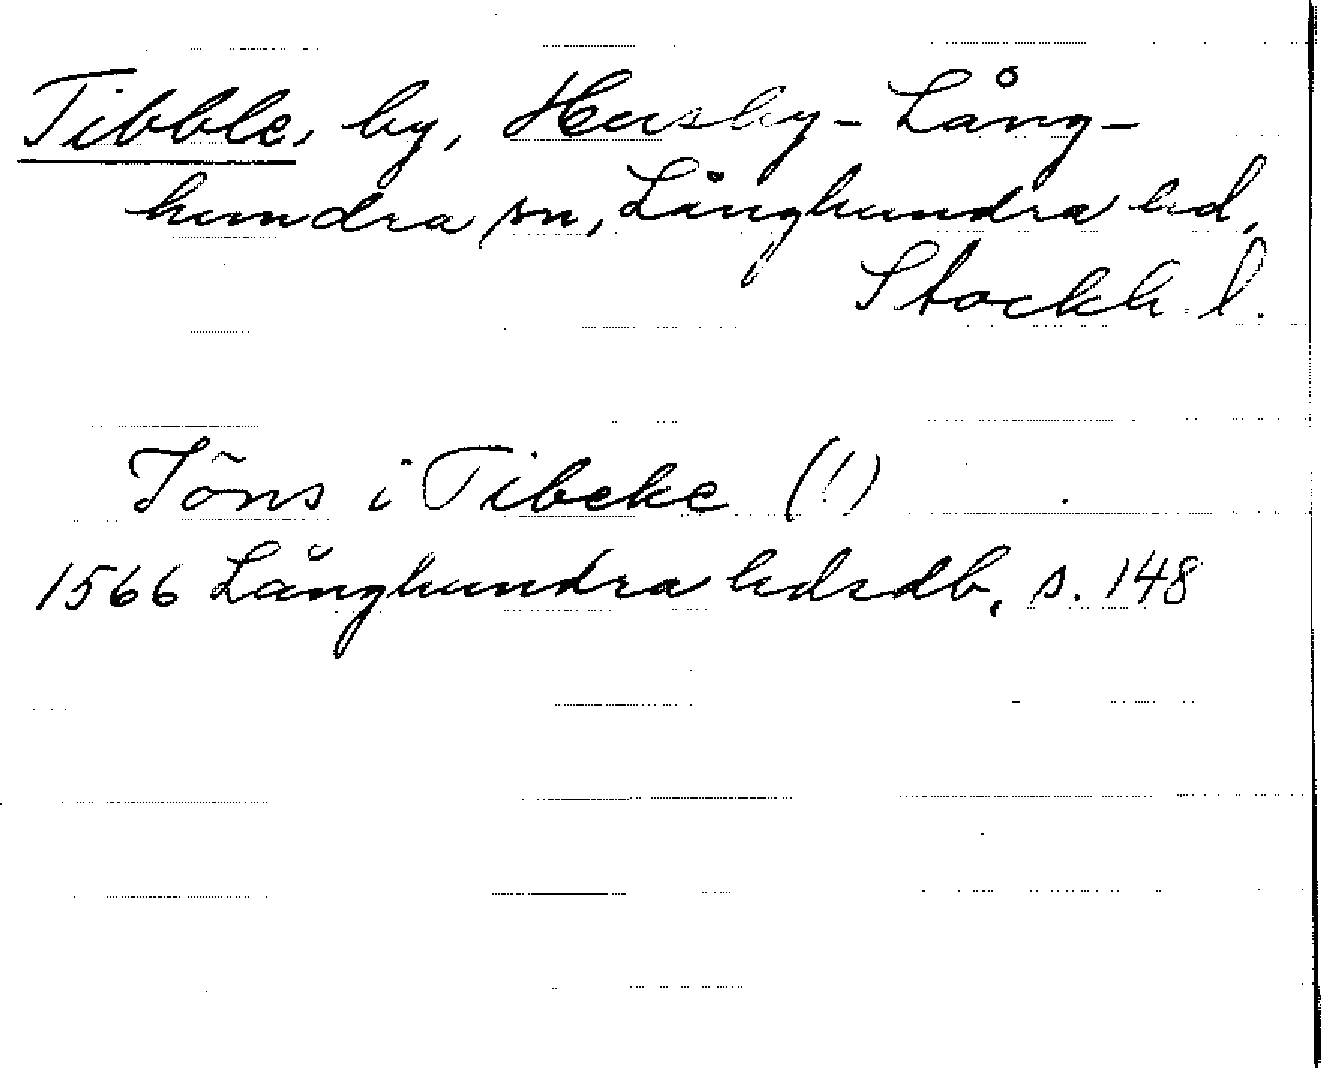 Tibble, by, Husby-Lång-
hundra sn, Långhundra hd,
Stockh. l.
Jöns i Tibeke (!)
1566 Långhundra hdsdb, s. 148